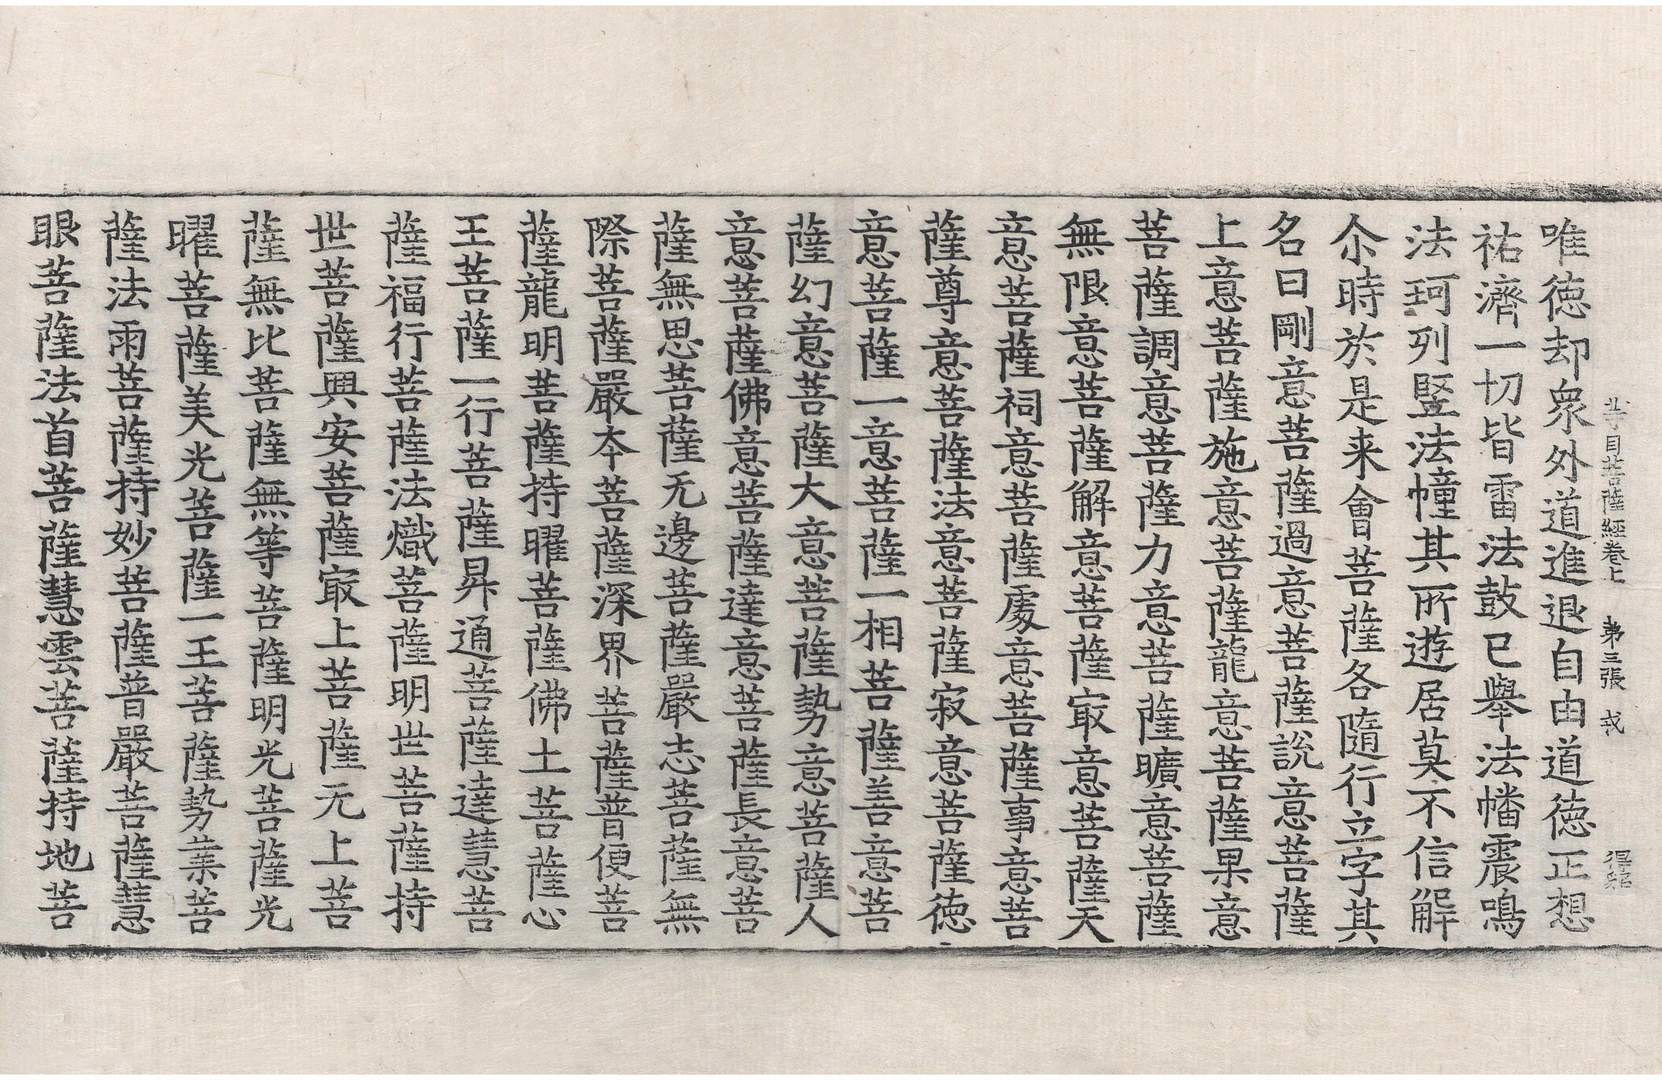 等目菩薩經卷上 第三張 戎
唯德却衆外道進退自由道德正想
祐濟一切皆雷法鼓已舉法幡震鳴
法珂列竪法幢其所遊居莫不信解
尒時於是来會菩薩各隨行立字其
名曰剛意菩薩過意菩薩說意菩薩
上意菩薩施意菩薩龍意菩薩果意
菩薩調意菩薩力意菩薩曠意菩薩
無限意菩薩解意菩薩㝡意菩薩天
意菩薩祠意菩薩處意菩薩事意菩
薩尊意菩薩法意菩薩寂意菩薩德
意菩薩一意菩薩一相菩薩善意菩
薩幻意菩薩大意菩薩勢意菩薩人
意菩薩佛意菩薩達意菩薩長意菩
薩無思菩薩无邊菩薩嚴志菩薩無
際菩薩嚴本菩薩深界菩薩普便菩
薩龍明菩薩持曜菩薩佛土菩薩心
王菩薩一行菩薩昇通菩薩達慧菩
薩福行菩薩法熾菩薩明世菩薩持
世菩薩興安菩薩㝡上菩薩无上菩
薩無比菩薩無等菩薩明光菩薩光
曜菩薩美光菩薩一王菩薩勢業菩
薩法雨菩薩持妙菩薩普嚴菩薩慧
眼菩薩法首菩薩慧雲菩薩持地菩